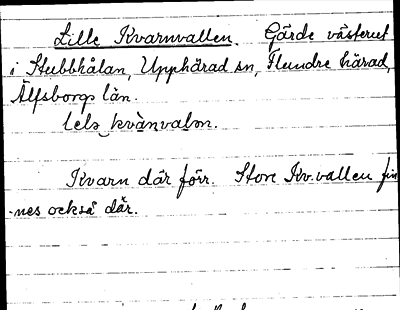 Lille Kvarnvallen. Gärde västerut
i Stubbhålan, Upphärad sn, Flundre härad,
Älfsborgs län.
lels kvànvalsn.
Kvarn där förr. Stora Kv.vallen fin
-nes också där.